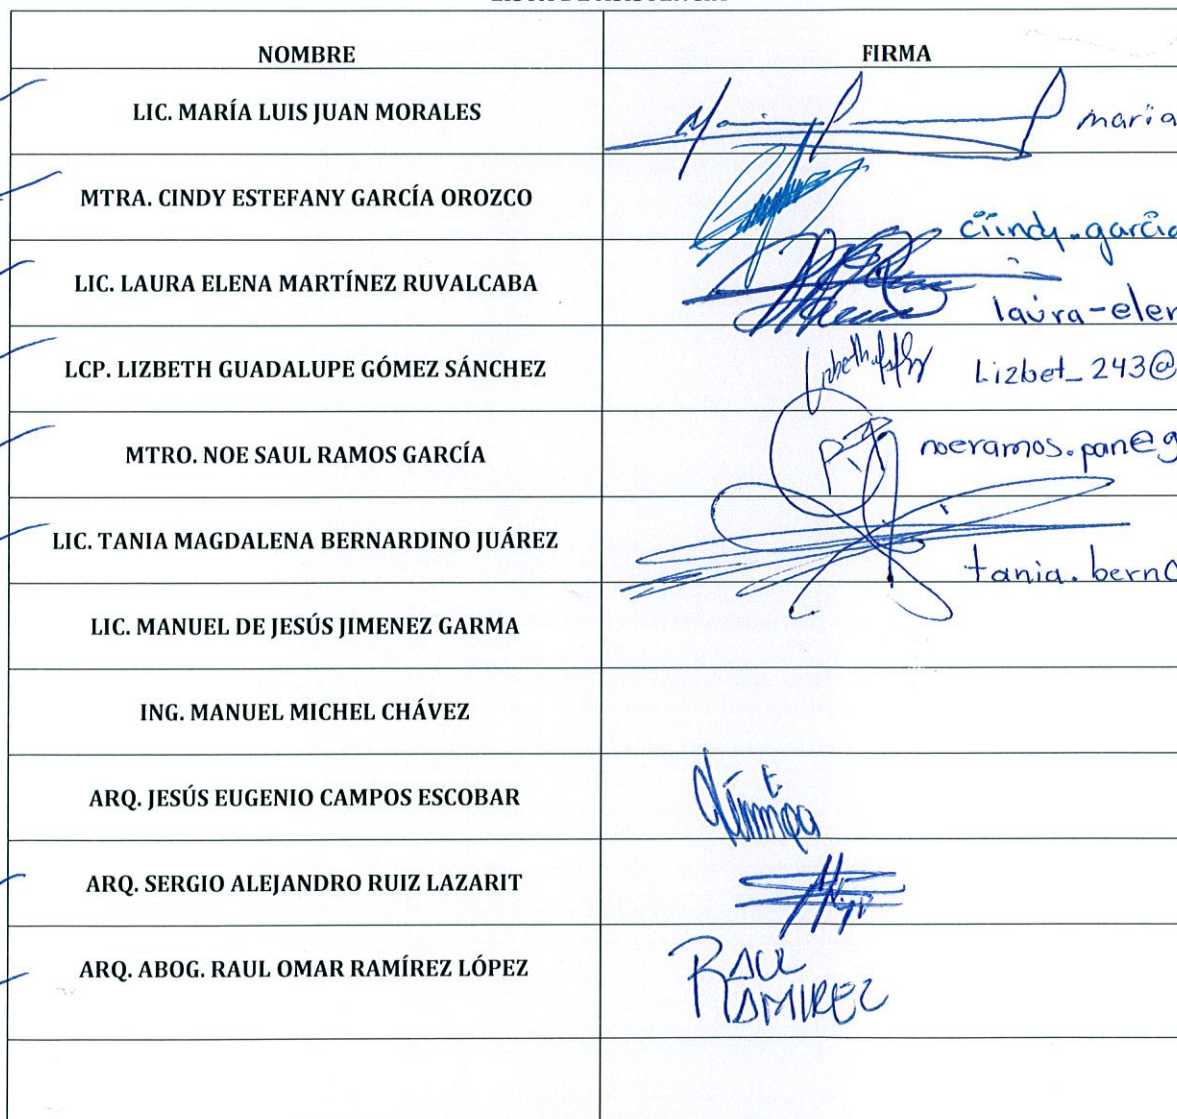 NOMBRE FIRMA
LIC. MARÍA LUIS JUAN MORALES maria
MTRA. CINDY ESTEFANY GARCÍA OROZCO ciindy.garcia
LIC. LAURA ELENA MARTÍNEZ RUVALCABA laura-elen
LCP. LIZBETH GUADALUPE GÓMEZ SÁNCHEZ Lizbet_243@
MTRO. NOE SAUL RAMOS GARCÍA noeramos.pan@g
LIC. TANIA MAGDALENA BERNARDINO JUÁREZ tania.berna
LIC. MANUEL DE JESÚS JIMENEZ GARMA
ING. MANUEL MICHEL CHÁVEZ
ARQ. JESÚS EUGENIO CAMPOS ESCOBAR
ARQ. SERGIO ALEJANDRO RUIZ LAZARIT
ARQ. ABOG. RAUL OMAR RAMÍREZ LÓPEZ RAUL
RAMIREZ